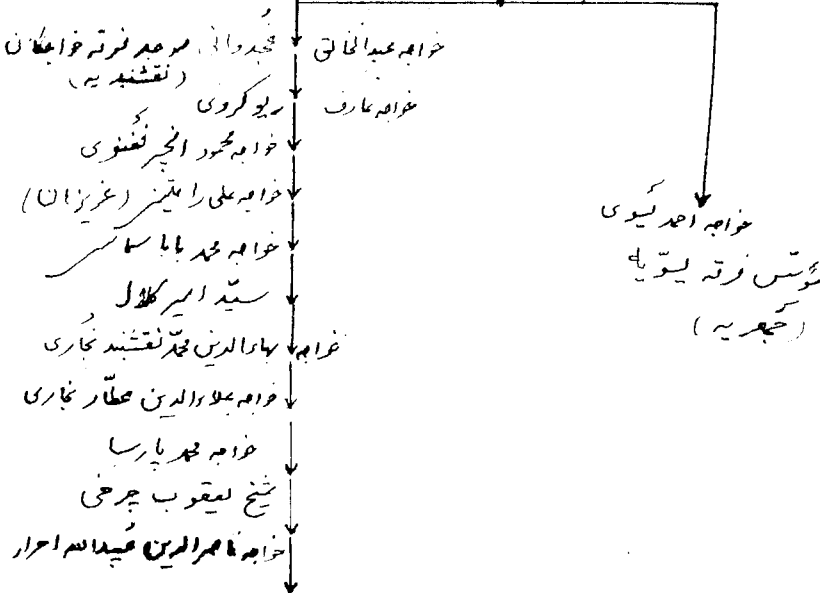 خواجه عبدالخالق غُجدوانی موجد فرقه خواجگان
(نقشبندیه)
خواجه عارف ریوگروی
خواجه محمود انجیر فَغنوی
خواجه علی رامتینی (عزیزان)
خواجه محمد بابا سماسی
سیّد امیر کلال
خواجه بهاءالدین محمّد نقشبند بُخاری
خواجه علاءالدین عطّار بخاری
خواجه محمد پارسا
شیخ یعقوب چرخی
خواجه ناصرالدین عُبیدالله احرار
خواجه احمد یَسَوی
مؤسّس فرقه یسَوّیه
(جَهریه)